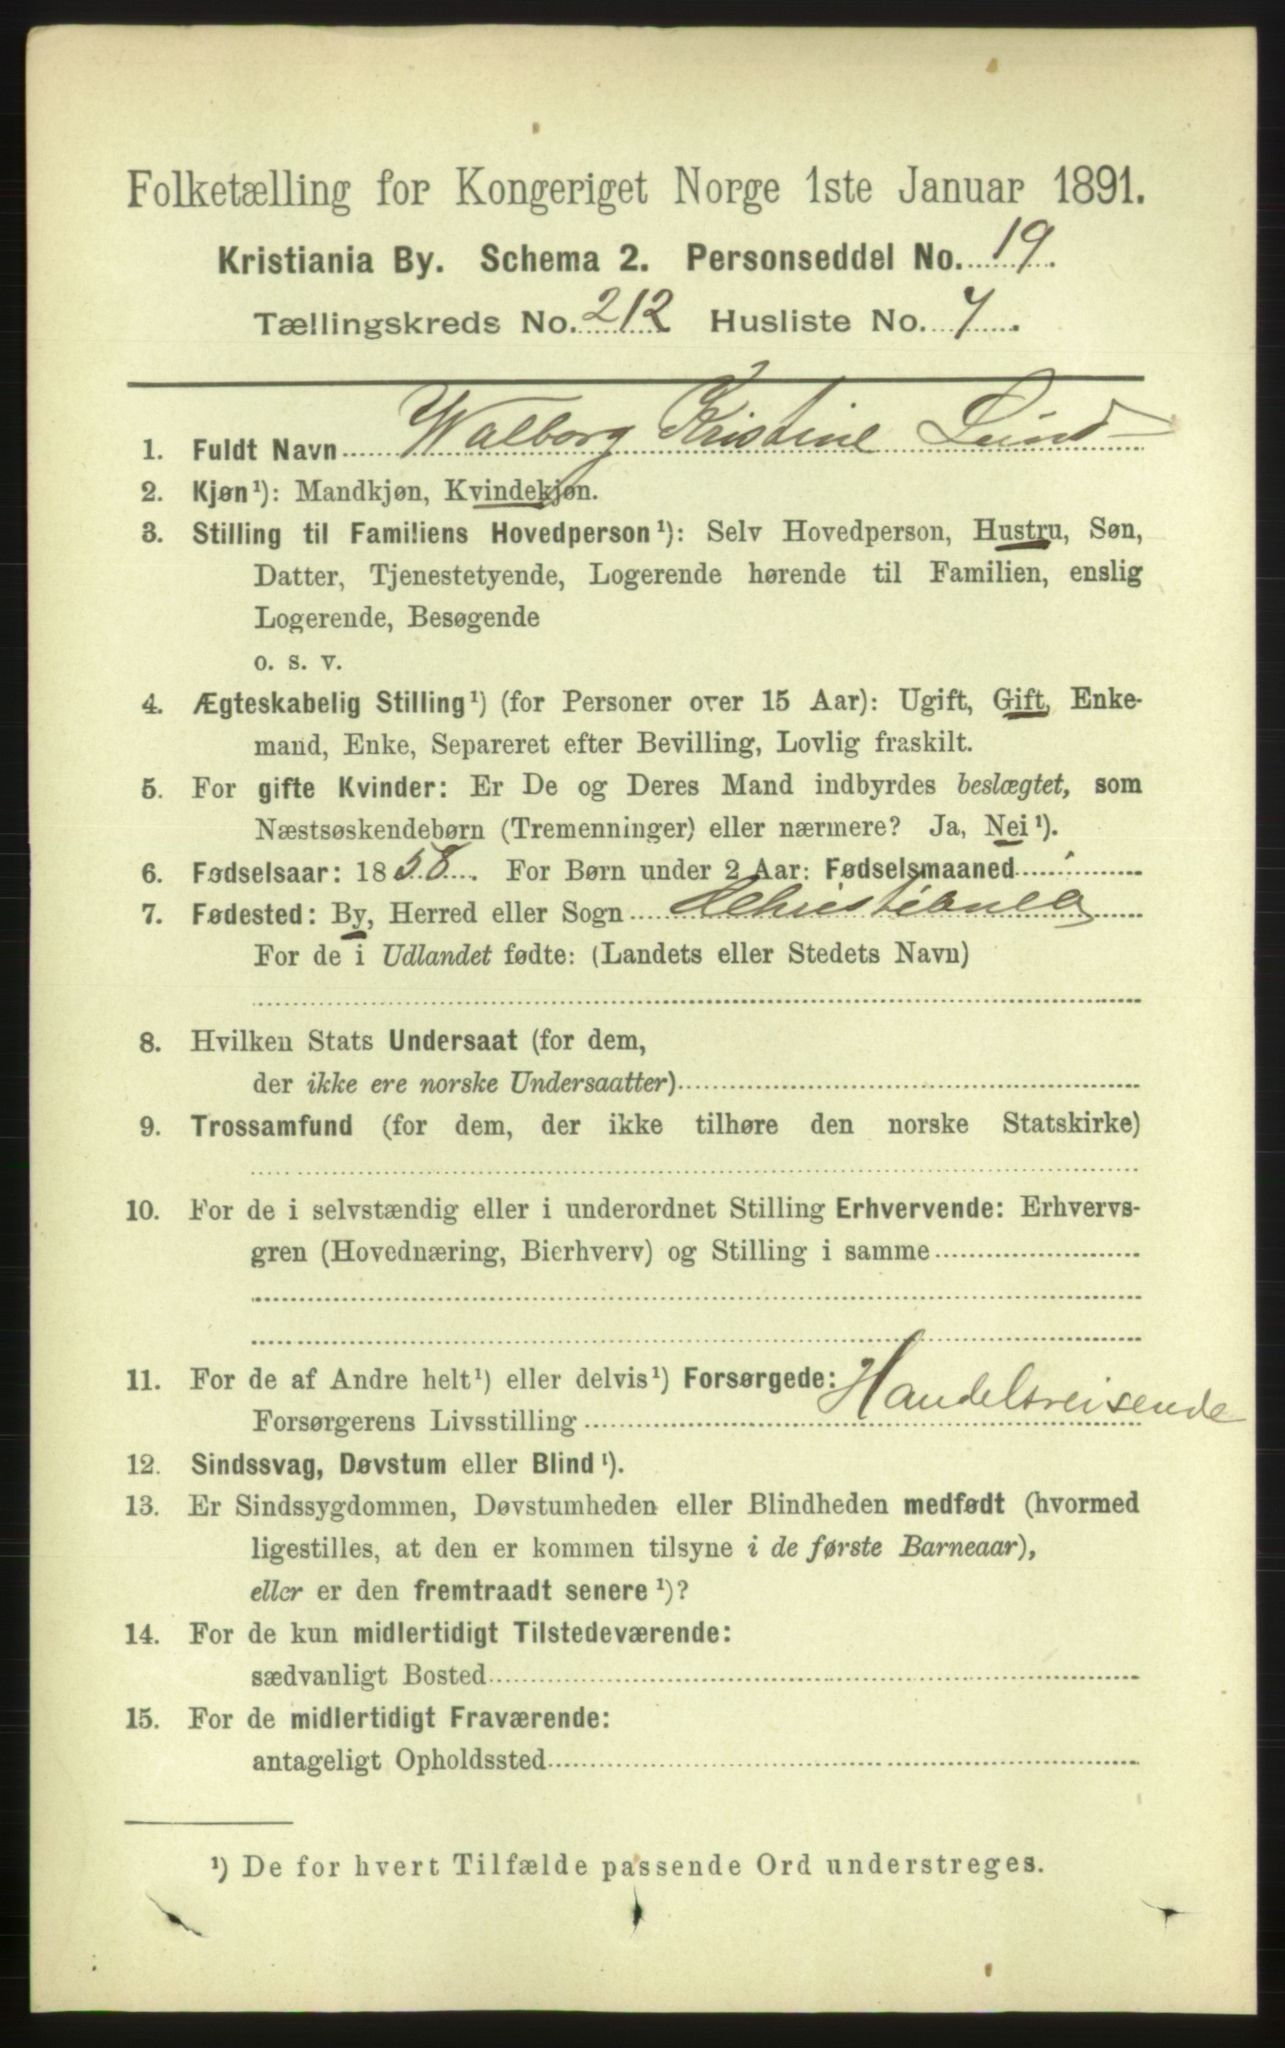 Folketælling for Kongeriget Norge 1ste Januar 1891.
Kristiania By. Schema 2. Personseddel No. 19.
Tællingskreds No. 212 Husliste No. 7.
1. Fuldt Navn Walborg Kristine Lund
2. Kjøn¹): Mandkjøn, Kvindekjøn.
3. Stilling til Familiens Hovedperson¹): Selv Hovedperson, Hustru, Søn,
Datter, Tjenestetyende, Logerende hørende til Familien, enslig
Logerende, Besøgende
o. s. v.
4. Ægteskabelig Stilling¹) (for Personer over 15 Aar): Ugift, Gift, Enke-
mand, Enke, Separeret efter Bevilling, Lovlig fraskilt.
5. For gifte Kvinder: Er De og Deres Mand indbyrdes beslægtet, som
Næstsøskendebørn (Tremenninger) eller nærmere? Ja, Nei¹).
6. Fødselsaar: 1858. For Børn under 2 Aar: Fødselsmaaned
7. Fødested: By, Herred eller Sogn Christiania
For de i Udlandet fødte: (Landets eller Stedets Navn)
8. Hvilken Stats Undersaat (for dem,
der ikke ere norske Undersaatter)
9. Trossamfund (for dem, der ikke tilhøre den norske Statskirke)
10. For de i selvstændig eller i underordnet Stilling Erhvervende: Erhvervs-
gren (Hovednæring, Bierhverv) og Stilling i samme
11. For de af Andre helt¹) eller delvis¹) Forsørgede:
Forsørgerens Livsstilling Handelsreisende
12. Sindssvag, Døvstum eller Blind¹).
13. Er Sindssygdommen, Døvstumheden eller Blindheden medfødt (hvormed
ligestilles, at den er kommen tilsyne i de første Barneaar),
eller er den fremtraadt senere¹)?
14. For de kun midlertidigt Tilstedeværende:
sædvanligt Bosted
15. For de midlertidigt Fraværende:
antageligt Opholdssted
¹) De for hvert Tilfælde passende Ord understreges.